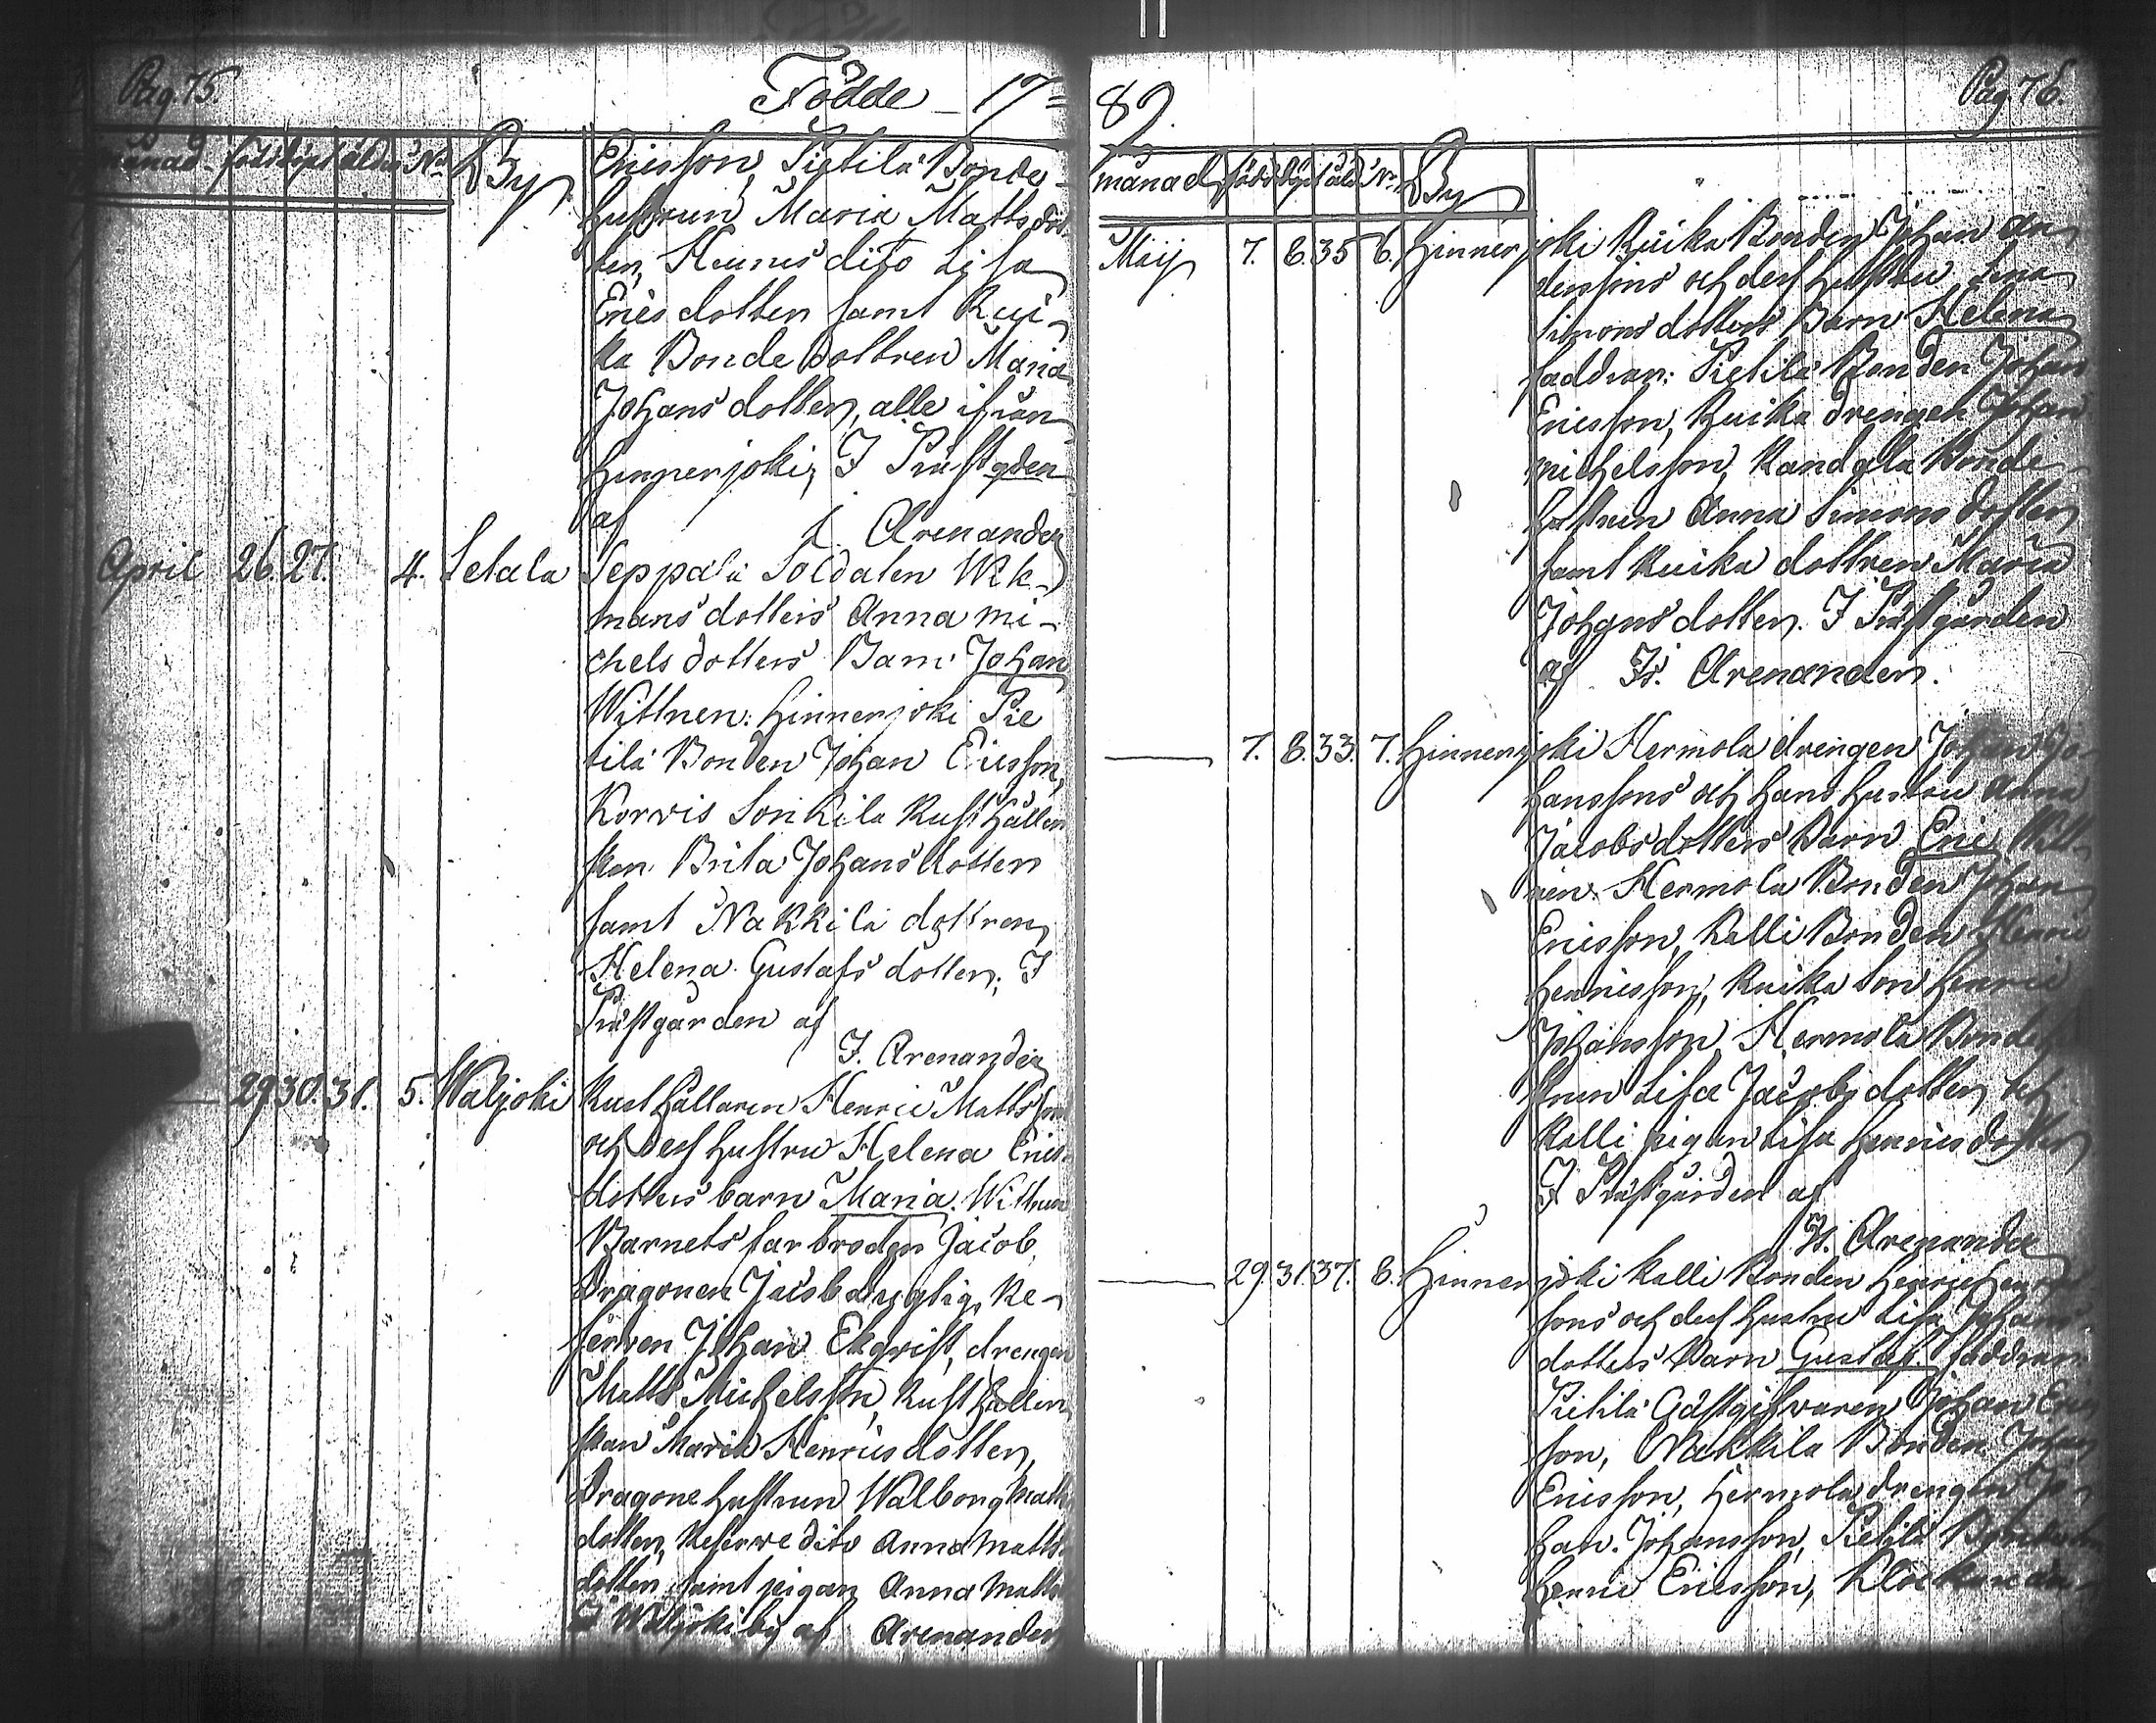 Pag. 75.
Födde 17=
månad född döpt ålder No By
Ericsson, Pietilä Bonde
hustrun Maria Matts dot-
ter, Heunis dito Lisa
Erics dotter samt Rui-
ka Bonde dottren Maria
Johans dotter, alle ifrån
Hinnerjoki, I Prästgden
af I. Arenander
April 26. 27. 4. Setala Seppälä Soldaten Wek-
mans dotters Anna Mi-
chels dotters Barn Johan
Wittnen: Hinnerjoki Pie
tilä Bonden Johan Ericsson,
Korvis Sonkila Rusthållar
skan Brita Johans dotter
samt Nakkila dottren
Helena Gustafs dotter; I
Prästgården af
I. Arenander
29 30. 31. 5. Waljoki Rusthållaren Henric Matts son
och dess hustru Helena Erics
dotters barn Maria. Wittnen
Barnets farbroder Jacob
Dragonen Jacob duglig, Re-
serven Johan Ekqvist, drengen
Matts Michelsson, Rusthållar
skan Maria Henrics dotter,
Dragone hustrun Walborg Matts
dotter, Reserve dito Anna Matts
dotter samt pigan Anna Matts
I Waljoki by af Arenander
89.
Pag 76.
månad född döpt åld No By
Maij 7. 8. 35 6. Hinnerjoki Ruika Bonden Johan An
derssons och dess hustru Lena
Simons dotters Barn Helena
faddrar: Pietilä Bonden Johan
Ericsson, Ruika drengen Johan
Michelsson, Kandola Bonde-
hustrun Anna Simons dotter
samt Ruika dottren Maria
Johans dotter. I Prästgården
af Is. Arenander.
7. 8. 33. 7. Hinnerjoki Hermola drengen Johan Jo-
hanssons och hans hustru Anna
Jacobs dotters Barn Eric Witt-
nen: Hermola Bonden Johan
Ericsson, Kalli Bonden Henric
Henricsson, Ruika Son Henric
Johansson, Hermola Bondehu
strun Lisa Jacobs dotter och
Kalli pigan Lisa Henrics dotter
I Prästgården af
Is. Arenander
29. 31. 37. 8. Hinnerjoki Kalli Bonden Henric Henric
sons och dess hustru Lisa Johans
dotters Barn Gustaf. faddrar:
Pietilä Gästgifvaren Johan Erics
son, Nakkila Bonden Johan
Ericsson, Hermola drengen Jo-
han Johansson, Pietilä
Henric Ericsson,